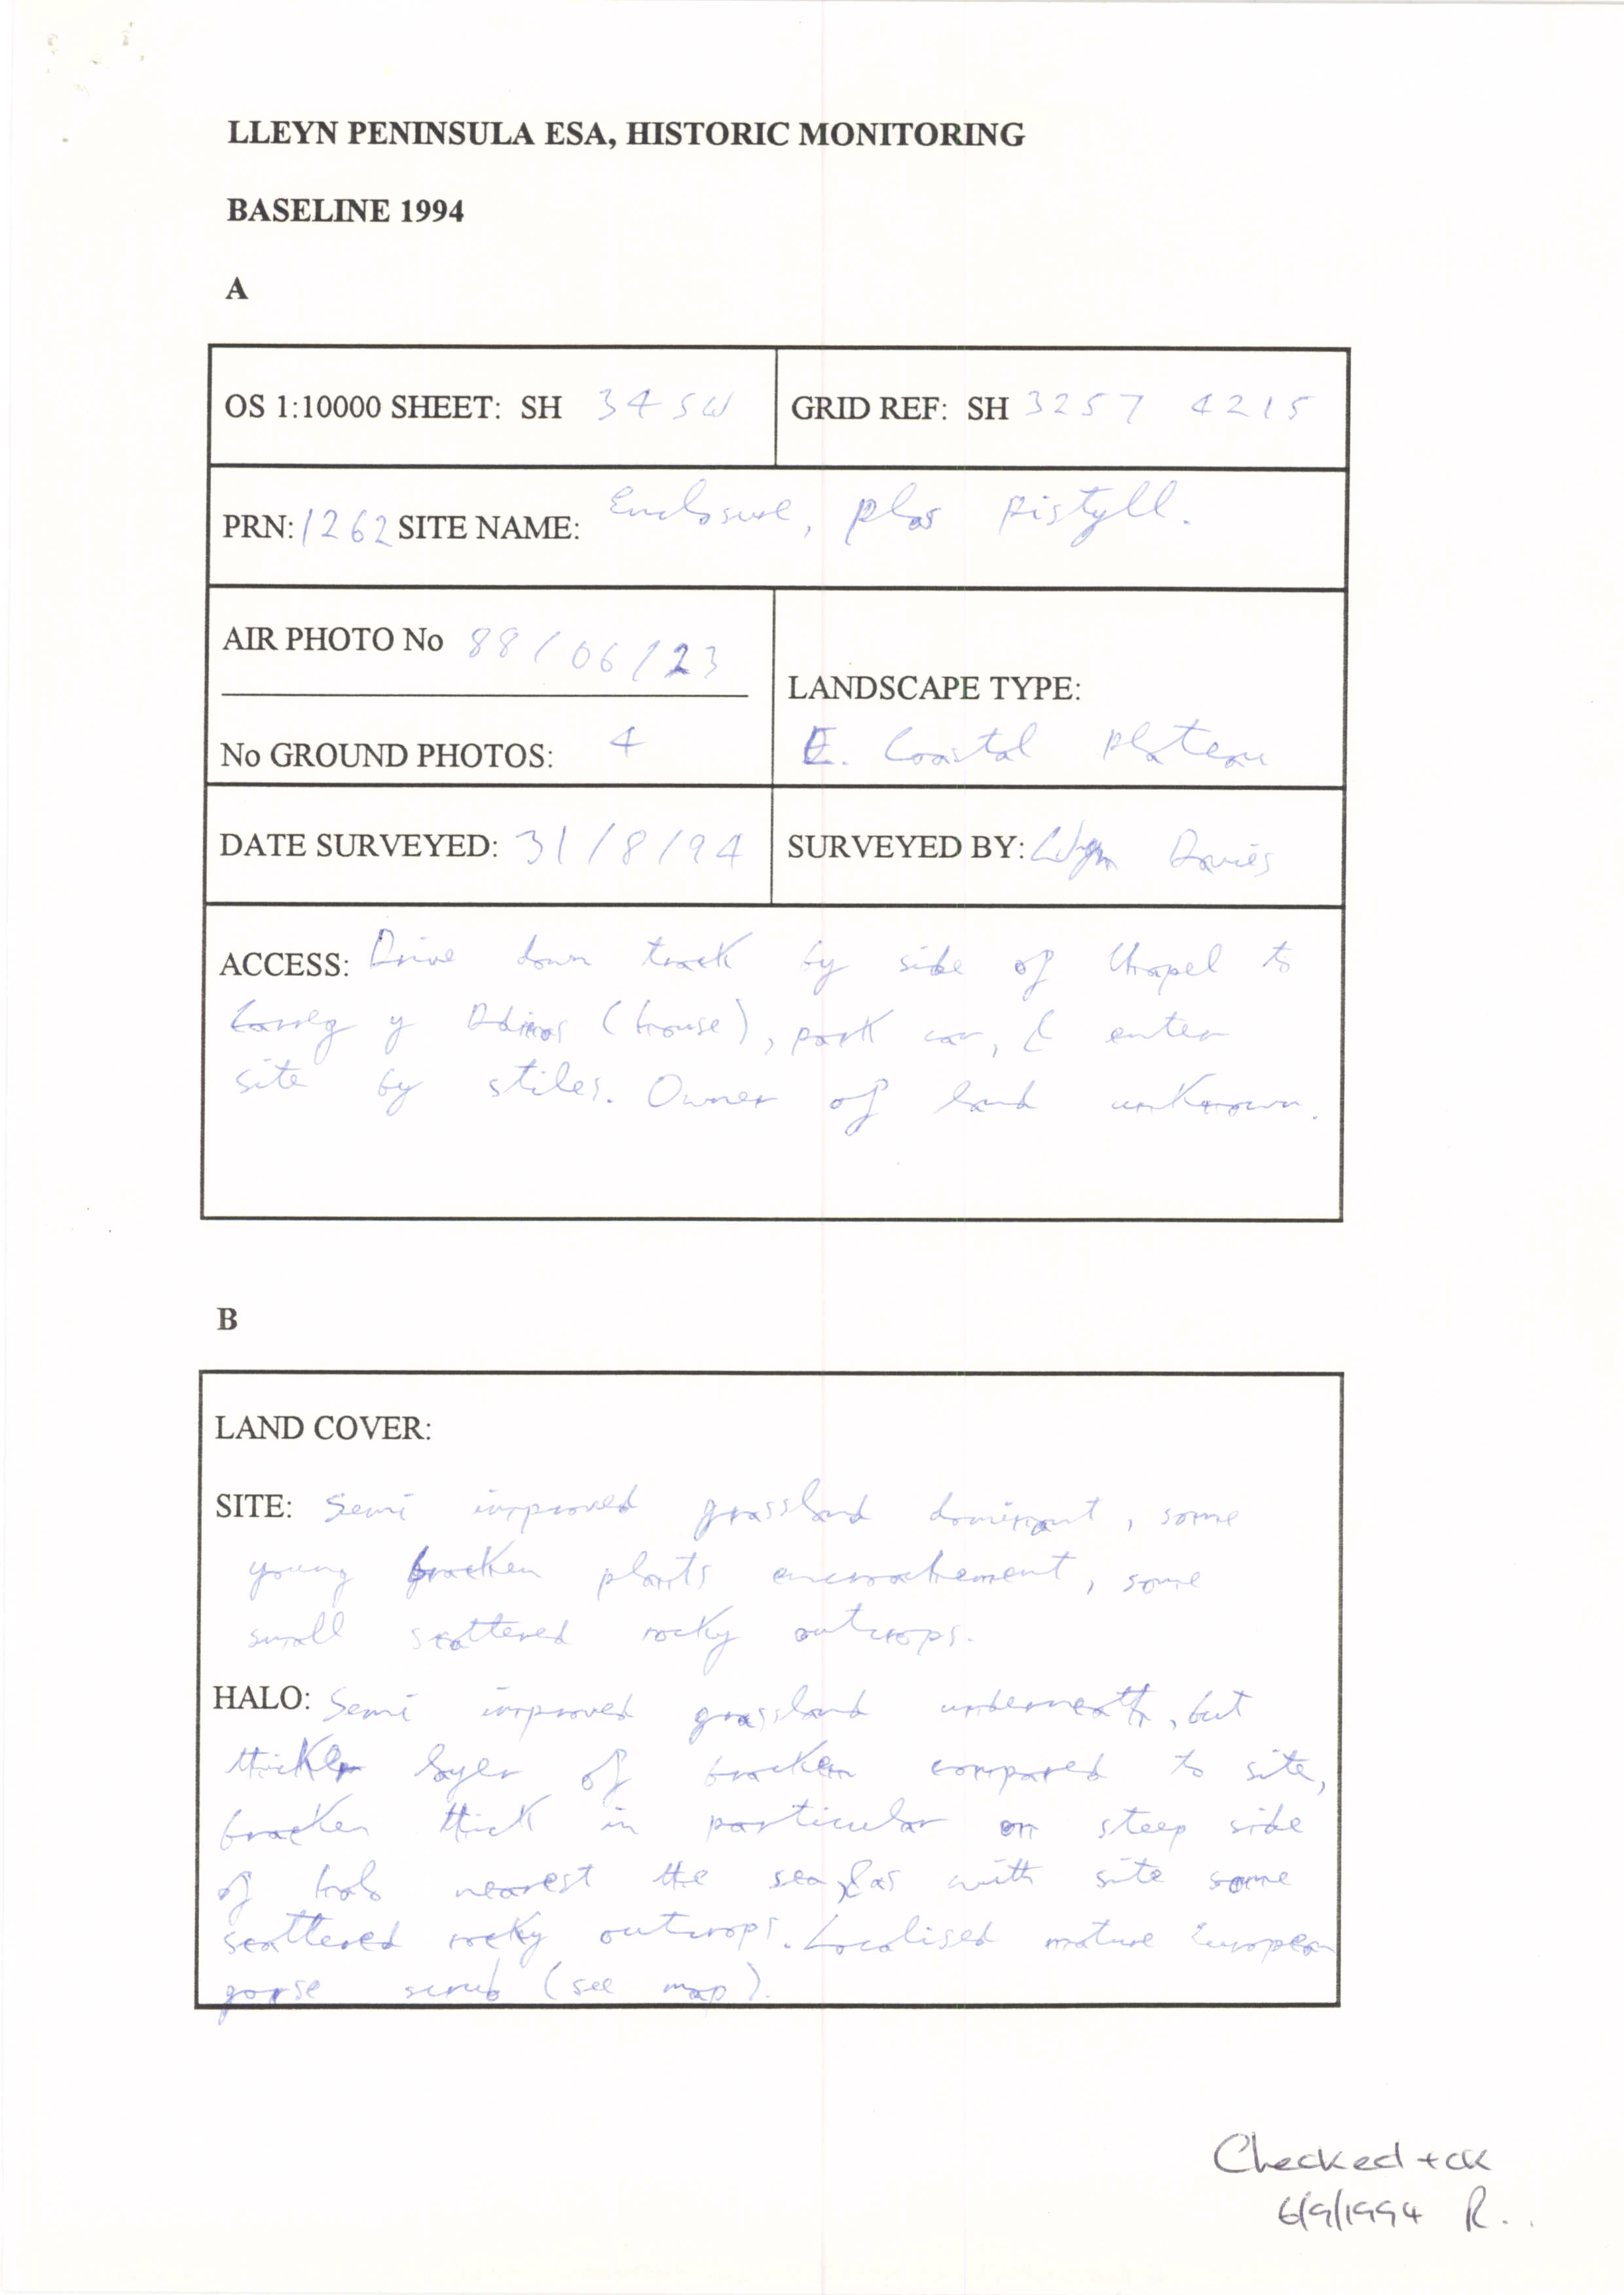 LLEYN PENINSULA ESA, HISTORIC MONITORING
BASELINE 1994
A
OS 1:10000 SHEET: SH 34 SW
GRID REF: SH 3257 4215
PRN: 1262 SITE NAME: Enclosure, Plas Pistyll.
AIR PHOTO No 88/06/23
No GROUND PHOTOS: 4
LANDSCAPE TYPE:
E. Coastal Plateau
DATE SURVEYED: 31/8/94
SURVEYED BY: Davies
ACCESS: Drive down track by side of Chapel to
Carreg y (house), park car, & enter
site by stiles. Owner of land unknown.
B
LAND COVER:
SITE: Semi improved grassland dominant, some
young bracken plants encroachement, some
small scattered rocky outcrops.
HALO: Semi improved grassland underneath, but
thicker layer of bracken compared to site,
bracken thick in particular on steep side
of halo nearest the sea, as with site some
scattered rocky outcrops. Localised mature European
gorse scrub (see map).
Checked + ok
6/9/1994 R..